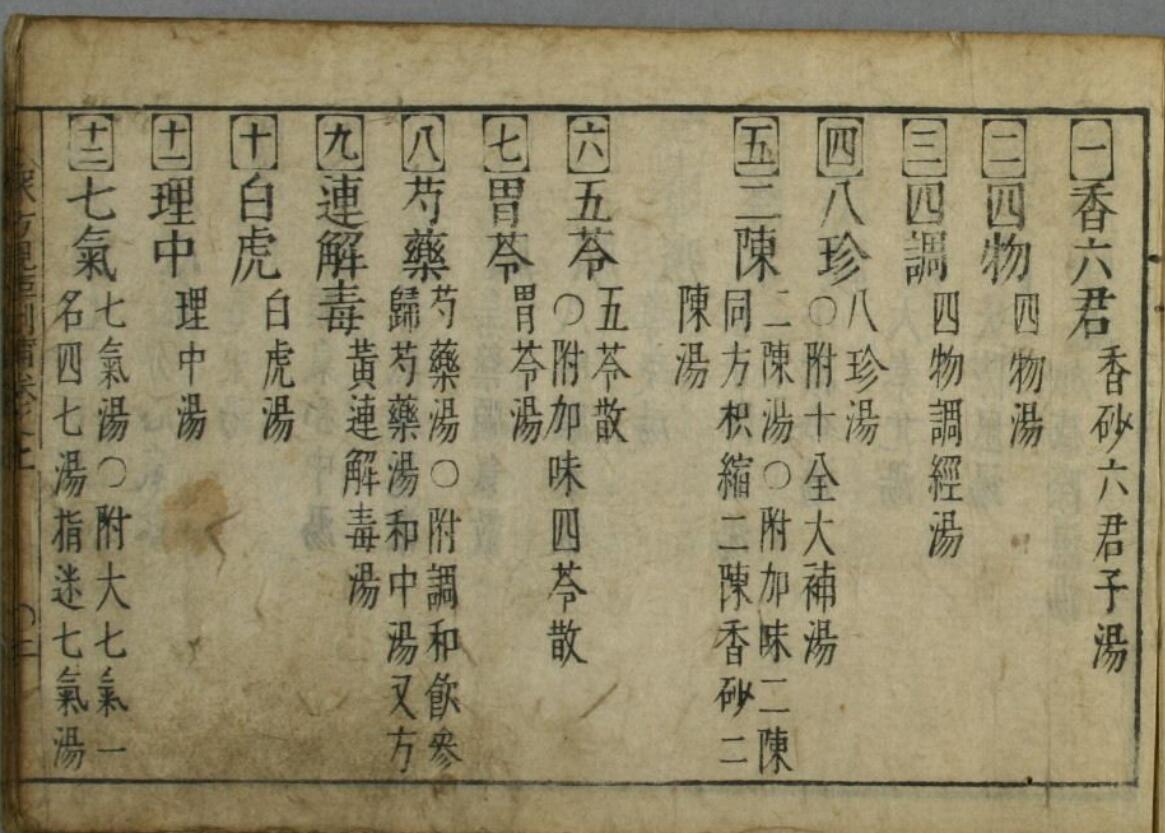 一 香六君 香砂六君子湯
二 四物 四物湯
三 四調 四物調經湯
四 八珍 八珍湯
〇附十全大補湯
五 二陳 二陳湯〇附加味二陳
同方枳縮二陳香砂二
陳湯
六 五苓 五苓散
〇附加味四苓散
七 胃苓 胃苓湯
八 芍藥 芍藥湯〇附調和飲參
歸芍藥湯和中湯又方
九 連解毒 黃連解毒湯
十 白虎 白虎湯
十一 理中 理中湯
十二 七氣 七氣湯〇附大七氣一
名四七湯指迷七氣湯